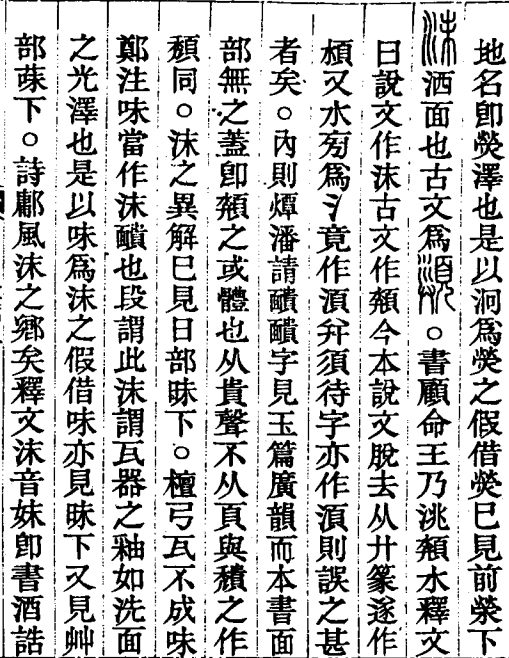 地名卽熒澤也是以泂爲熒之假借熒巳見前榮下
沬洒面也古文爲湏。書顧命王乃洮頮水釋文
曰說文作沬古文作頮今本說文脫去从廾篆遂作
湏又水㫄爲氵竟作湏弁須待字亦作湏則誤之甚
者矣。內則燂潘請靧靧字見玉篇廣韻而本書面
部無之蓋卽頮之或體也从貴聲不从頁與穨之作
頽同。沬之異解巳見日部昧下。檀弓瓦不成味
鄭注味當作沬靧也段謂此沬謂瓦器之釉如洗面
之光澤也是以味爲沬之假借味亦見昧下又見艸
部莍下。詩鄘風沬之鄉矣釋文沬音妹卽書酒誥